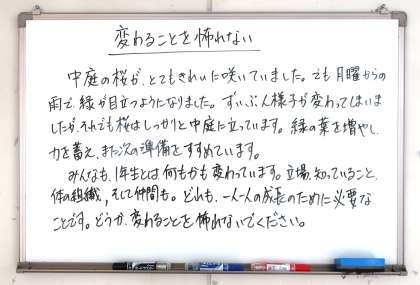 変わることを怖れない
中庭の桜が、とてもきれいに咲いていました。でも月曜からの
雨で、緑が目立つようになりました。ずいぶん様子が変わってしまいま
したが、それでも桜はしっかりと中庭に立っています。緑の葉を増やし、
力を蓄え、また次の準備をすすめています。
みんなも、1年生とは何もかも変わっています。立場、知っていること、
体の組織、そして仲間も。どれも、一人一人の成長のために必要な
ことです。どうか、変わることを怖れないでください。